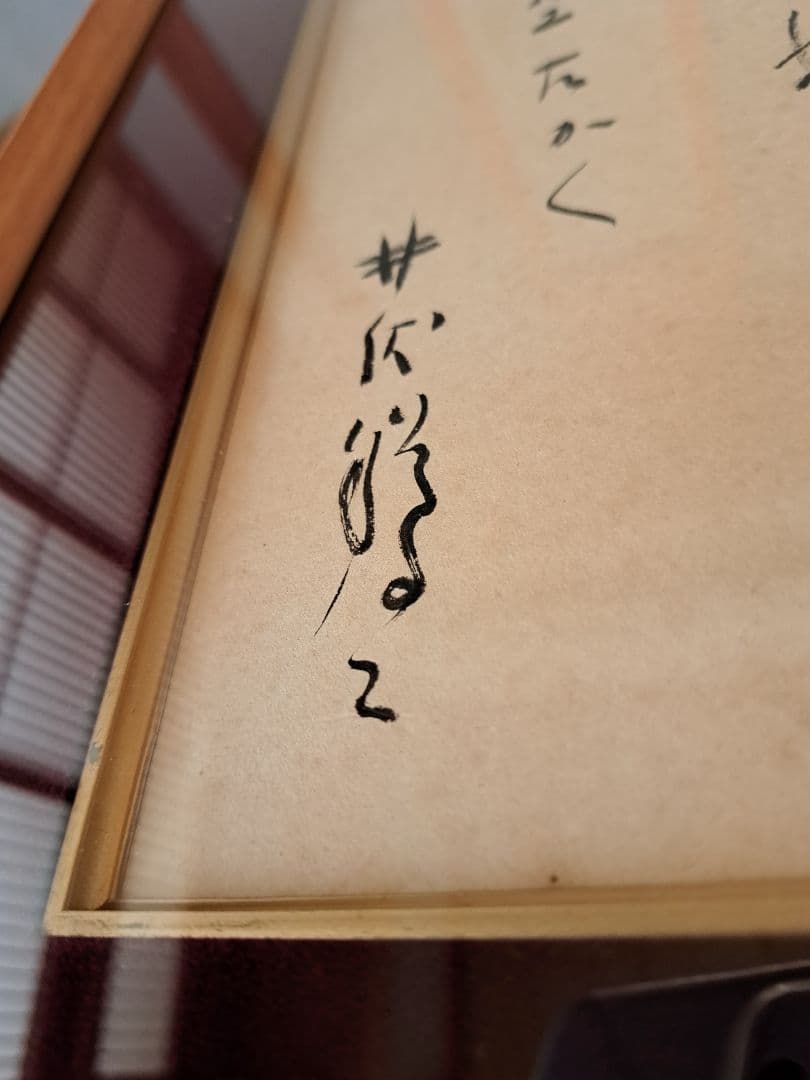 たかく
井伏鱒二